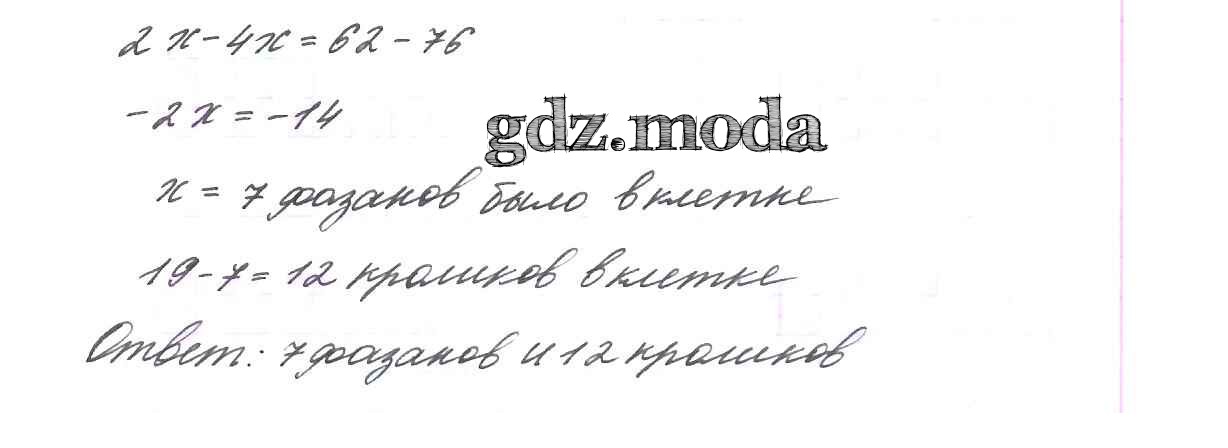 2x-4x=62-76
-2x=-14
gdz.moda
x = 7 фазанов было в клетке
19-7=12 кроликов в клетке
Ответ: 7 фазанов и 12 кроликов